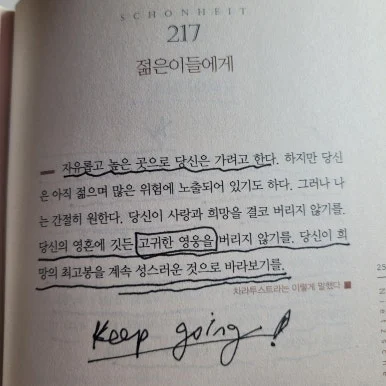 SCHONHEIT
217
젊은이들에게
자유롭고 높은 곳으로 당신은 가려고 한다. 하지만 당신
은 아직 젊으며 많은 위험에 노출되어 있기도 하다. 그러나 나
는 간절히 원한다. 당신이 사랑과 희망을 결코 버리지 않기를.
당신의 영혼에 깃든 고귀한 영웅을 버리지 않기를. 당신이 희
망의 최고봉을 계속 성스러운 것으로 바라보기를.
차라투스트라는 이렇게 말했다
Keep going!
Nietzsche